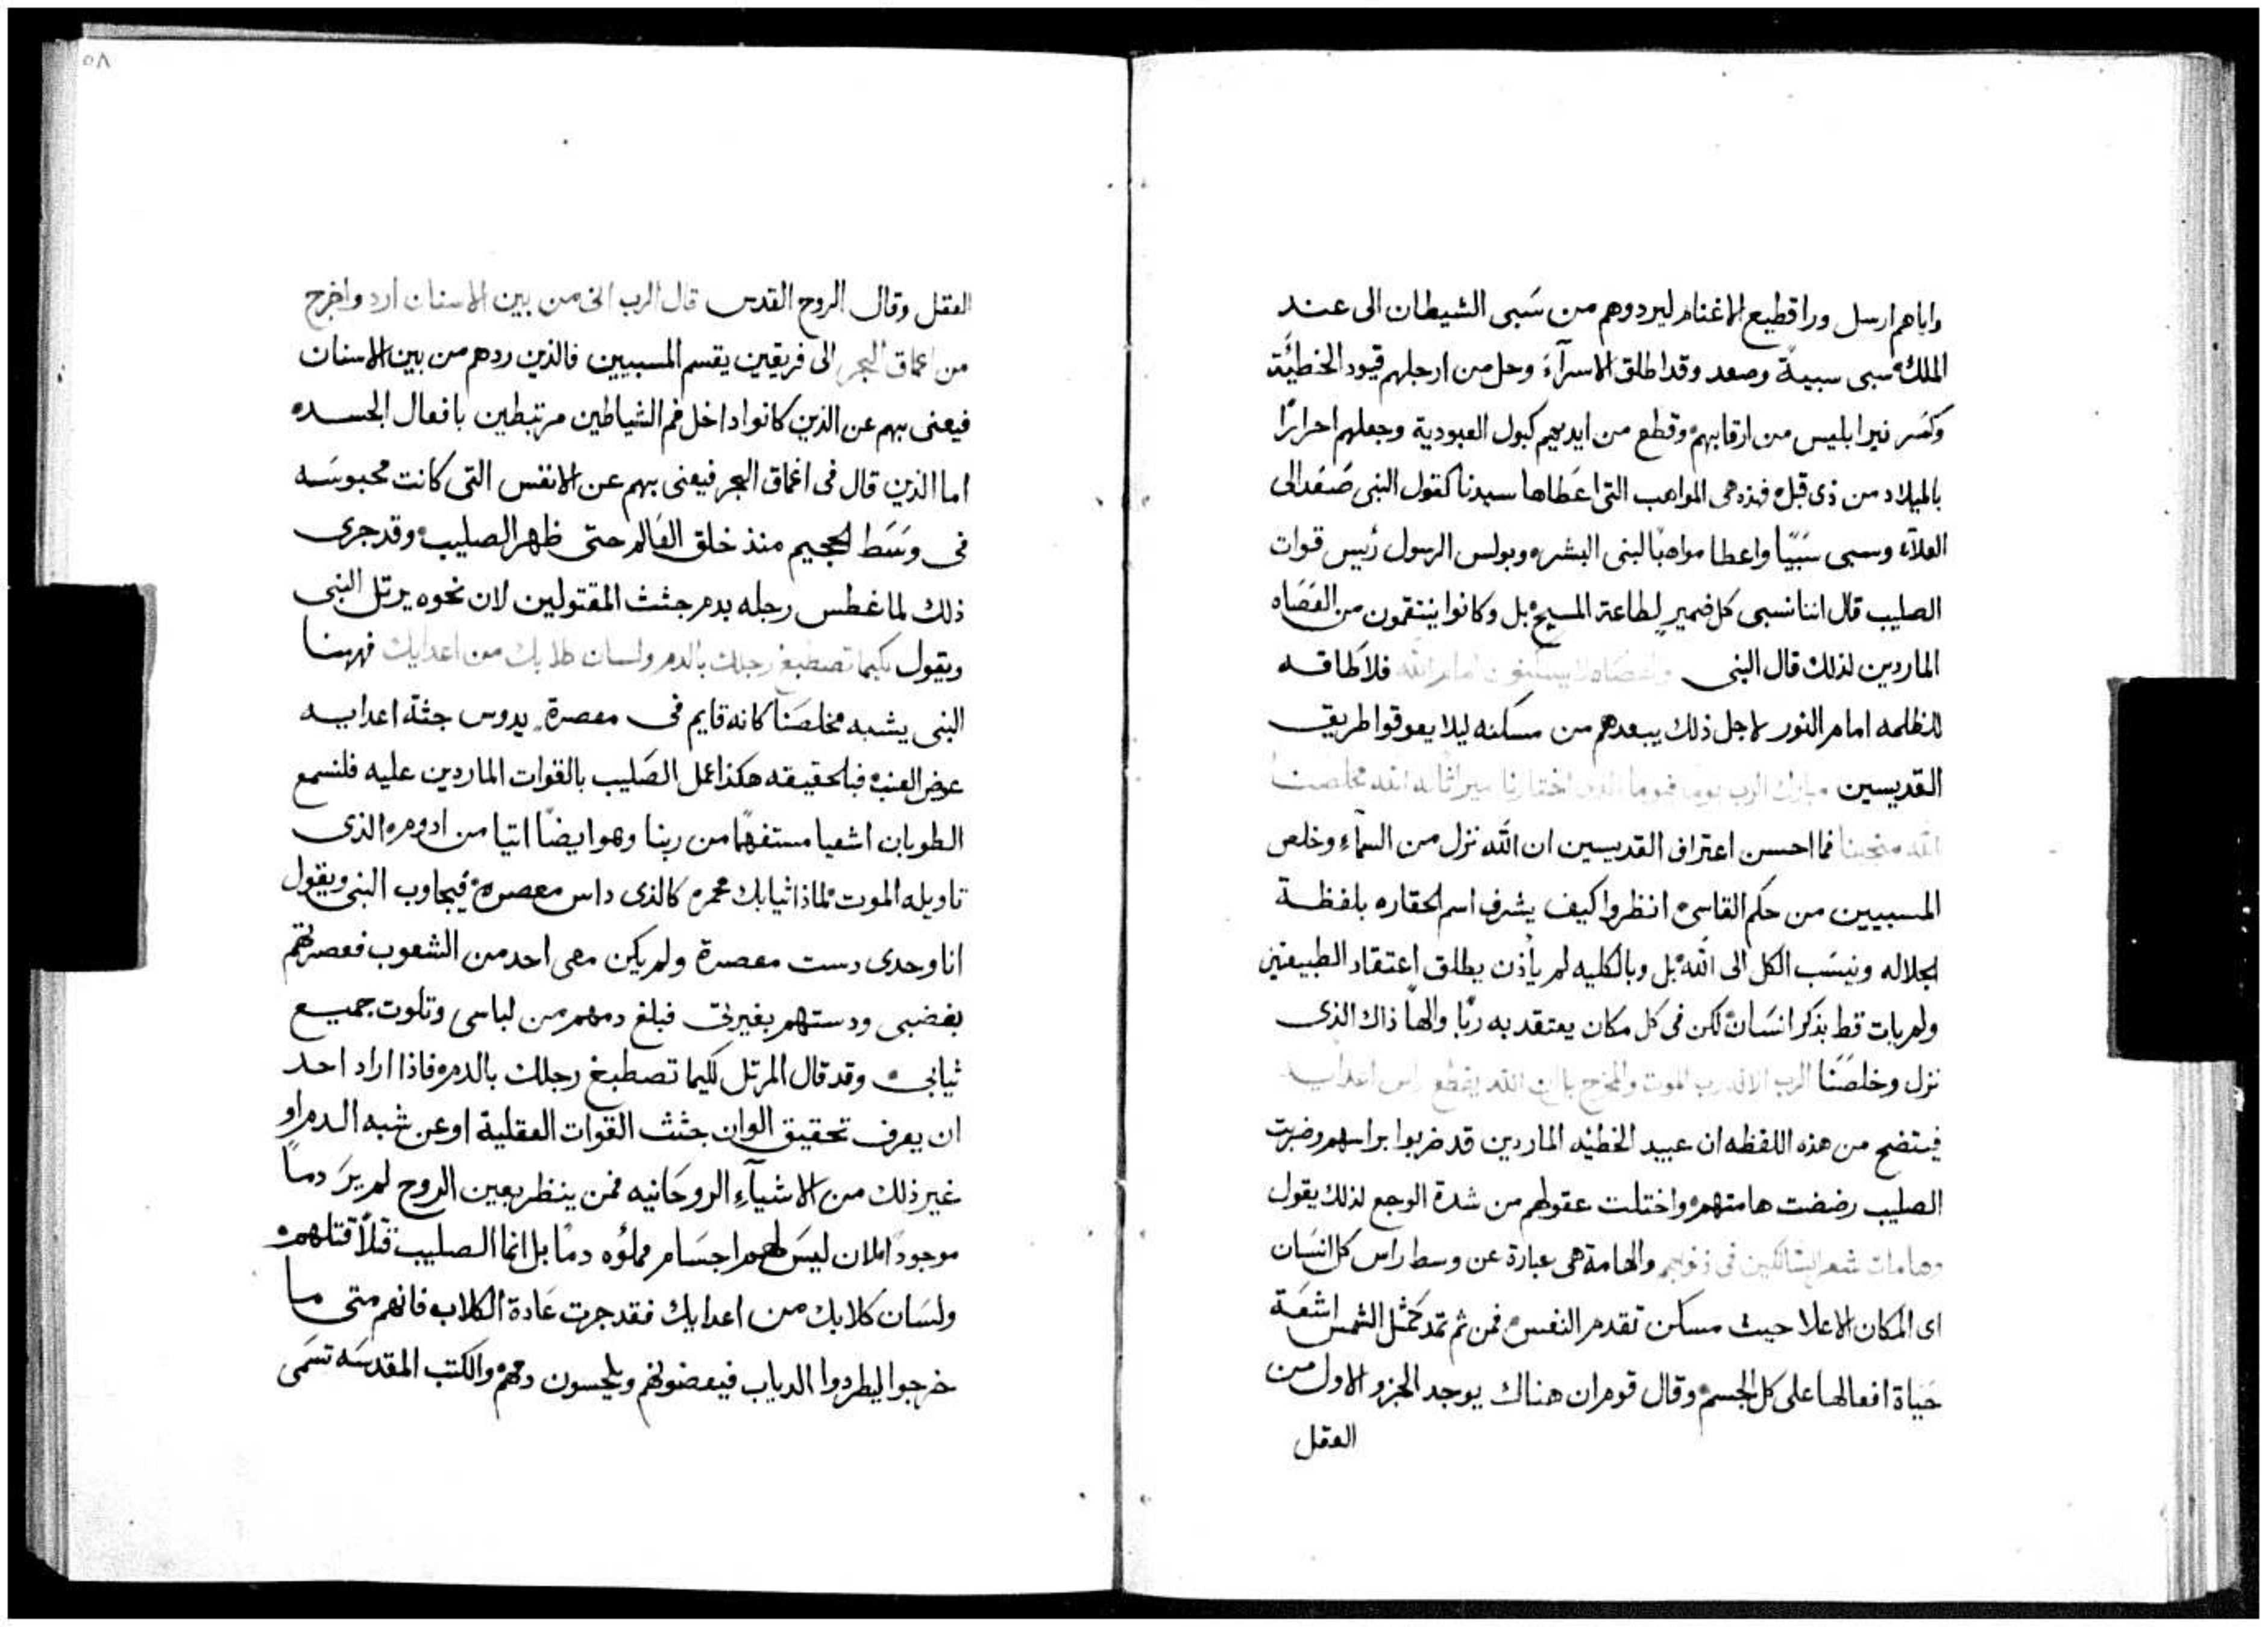 واباهم ارسل ورا قطيع الاغنام ليردوهم من سَبى الشيطان الى عند
الملك سبى سبيةً وصعد وقد اطلق الاسرآءَ وحل من ارجلهم قيود الخطيَّة
وكسَر نير ابليس من ارقابهم وقطع من ايديهم كبول العبودية وجعلهم احرارًا
بالميلاد من ذى قبل فهذه هى المواهب التى اعَطاها سيدنا كقول النبى صَعَد الى
العلآء وسبى سَبيًا واعطا مواهبًا لبنى البشر وبولس الرسول رئيس قوات
الصليب قال اننا نسبى كل ضمير لطاعة المسيح بل وكانوا ينتقمون من العَصَاه
الماردين لذلك قال النبى والعصاه لا يسكنون امام الله فلا طاقه
للظلمه امام النور لاجل ذلك يبعدهم من مسكنه ليلا يعوقوا طريق
القديسين مبارك الرب يومًا فيوما الذى اختارنا ميراثا له الله مخلصنا
الله منجينا فما احسن اعتراف القديسين ان الله نزل من السمآءِ وخلص
المسبيين من حكم القاسى انظروا كيف يشرف اسم الحقاره بلفظة
الجلاله وينسَب الكل الى الله بل وبالكليه لم يأذن يطلق اعتقاد الطبيعتين
ولم يات قط بذكر انسَان لكن فى كل مكان يعتقد به ربًا والهًا ذاك الذى
نزل وخلصَنا الرب الاله رب الموت والمخرج بل ان الله يقطع راس اعدايه
فيتضح من هذه اللفظه ان عبيد الخطيه الماردين قد ضربوا براسهم وضربت
الصليب رضضت هامتهم واختلت عقولهم من شدة الوجع لذلك يقول
وهامات شعر السالكين فى ذنوبهم والهامة هى عبارة عن وسط راس كل انسَان
اى المكان الاعلا حيث مسكن تقدم النفس فمن ثم تمد كمَثل الشمس اشعَة
حَياة افعالها على كل الجسم وقال قوم ان هناك يوجد الجزو الاول من
العقل
٥٨
العقل وقال الروح القدس قال الرب انى من بين الاسنان ارد واخرج
من اعماق البحر الى فريقين يقسم المسبيين فالذين ردهم من بين الاسنان
فيعنى بهم عن الذين كانوا داخل فم الشياطين مرتبطين بافعال الجسده
اما الذين قال فى اعماق البحر فيعنى بهم عن الانفس التى كانت محبوسَه
فى وسَط الجحيم منذ خلق العَالم حتى ظهر الصليب وقد جرى
ذلك لما غطس رجله بدم جثث المقتولين لان نحوه يرتل النبى
ويقول لكيما تصطبغ رجلك بالدم ولسان كلابك من اعدايك فههنا
النبى يشبه مخلصَنا كانه قايم فى معصرة يدوس جثة اعدايه
عوض العنب فبالحقيقه هكذا عمل الصَليب بالقوات الماردين عليه فلنسمع
الطوبان اشعيا مستفهمًا من ربنا وهو ايضًا اتيا من ادوم الذى
تاويله الموت لماذا ثيابك محمره كالذى داس معصره فيجاوب النبى ويقول
انا وحدى دست معصرة ولم يكن معى احد من الشعوب فعصرتهم
بغضبى ودستهم بغيرتى فبلغ دمهم من لباسى وتلوت جميع
ثيابى وقد قال المرتل لكيما تصطبغ رجلك بالدم فاذا اراد احد
ان يعرف تحقيق الوان جثث القوات العقلية او عن شبه الدم او
غير ذلك من الاشيآءِ الروحَانيه فمن ينظر بعين الروح لم يرَ دماً
موجوداً لان ليسَ لهم اجسَام مملؤه دمًا بل انما الصليب قتلاً قتلهم
ولسَان كلابك من اعدايك فقد جرت عَادة الكلاب فانهم متى ما
خرجوا ليطردوا الدياب فيعضونهم ويلحسون دمهم والكتب المقدسَه تسَمى